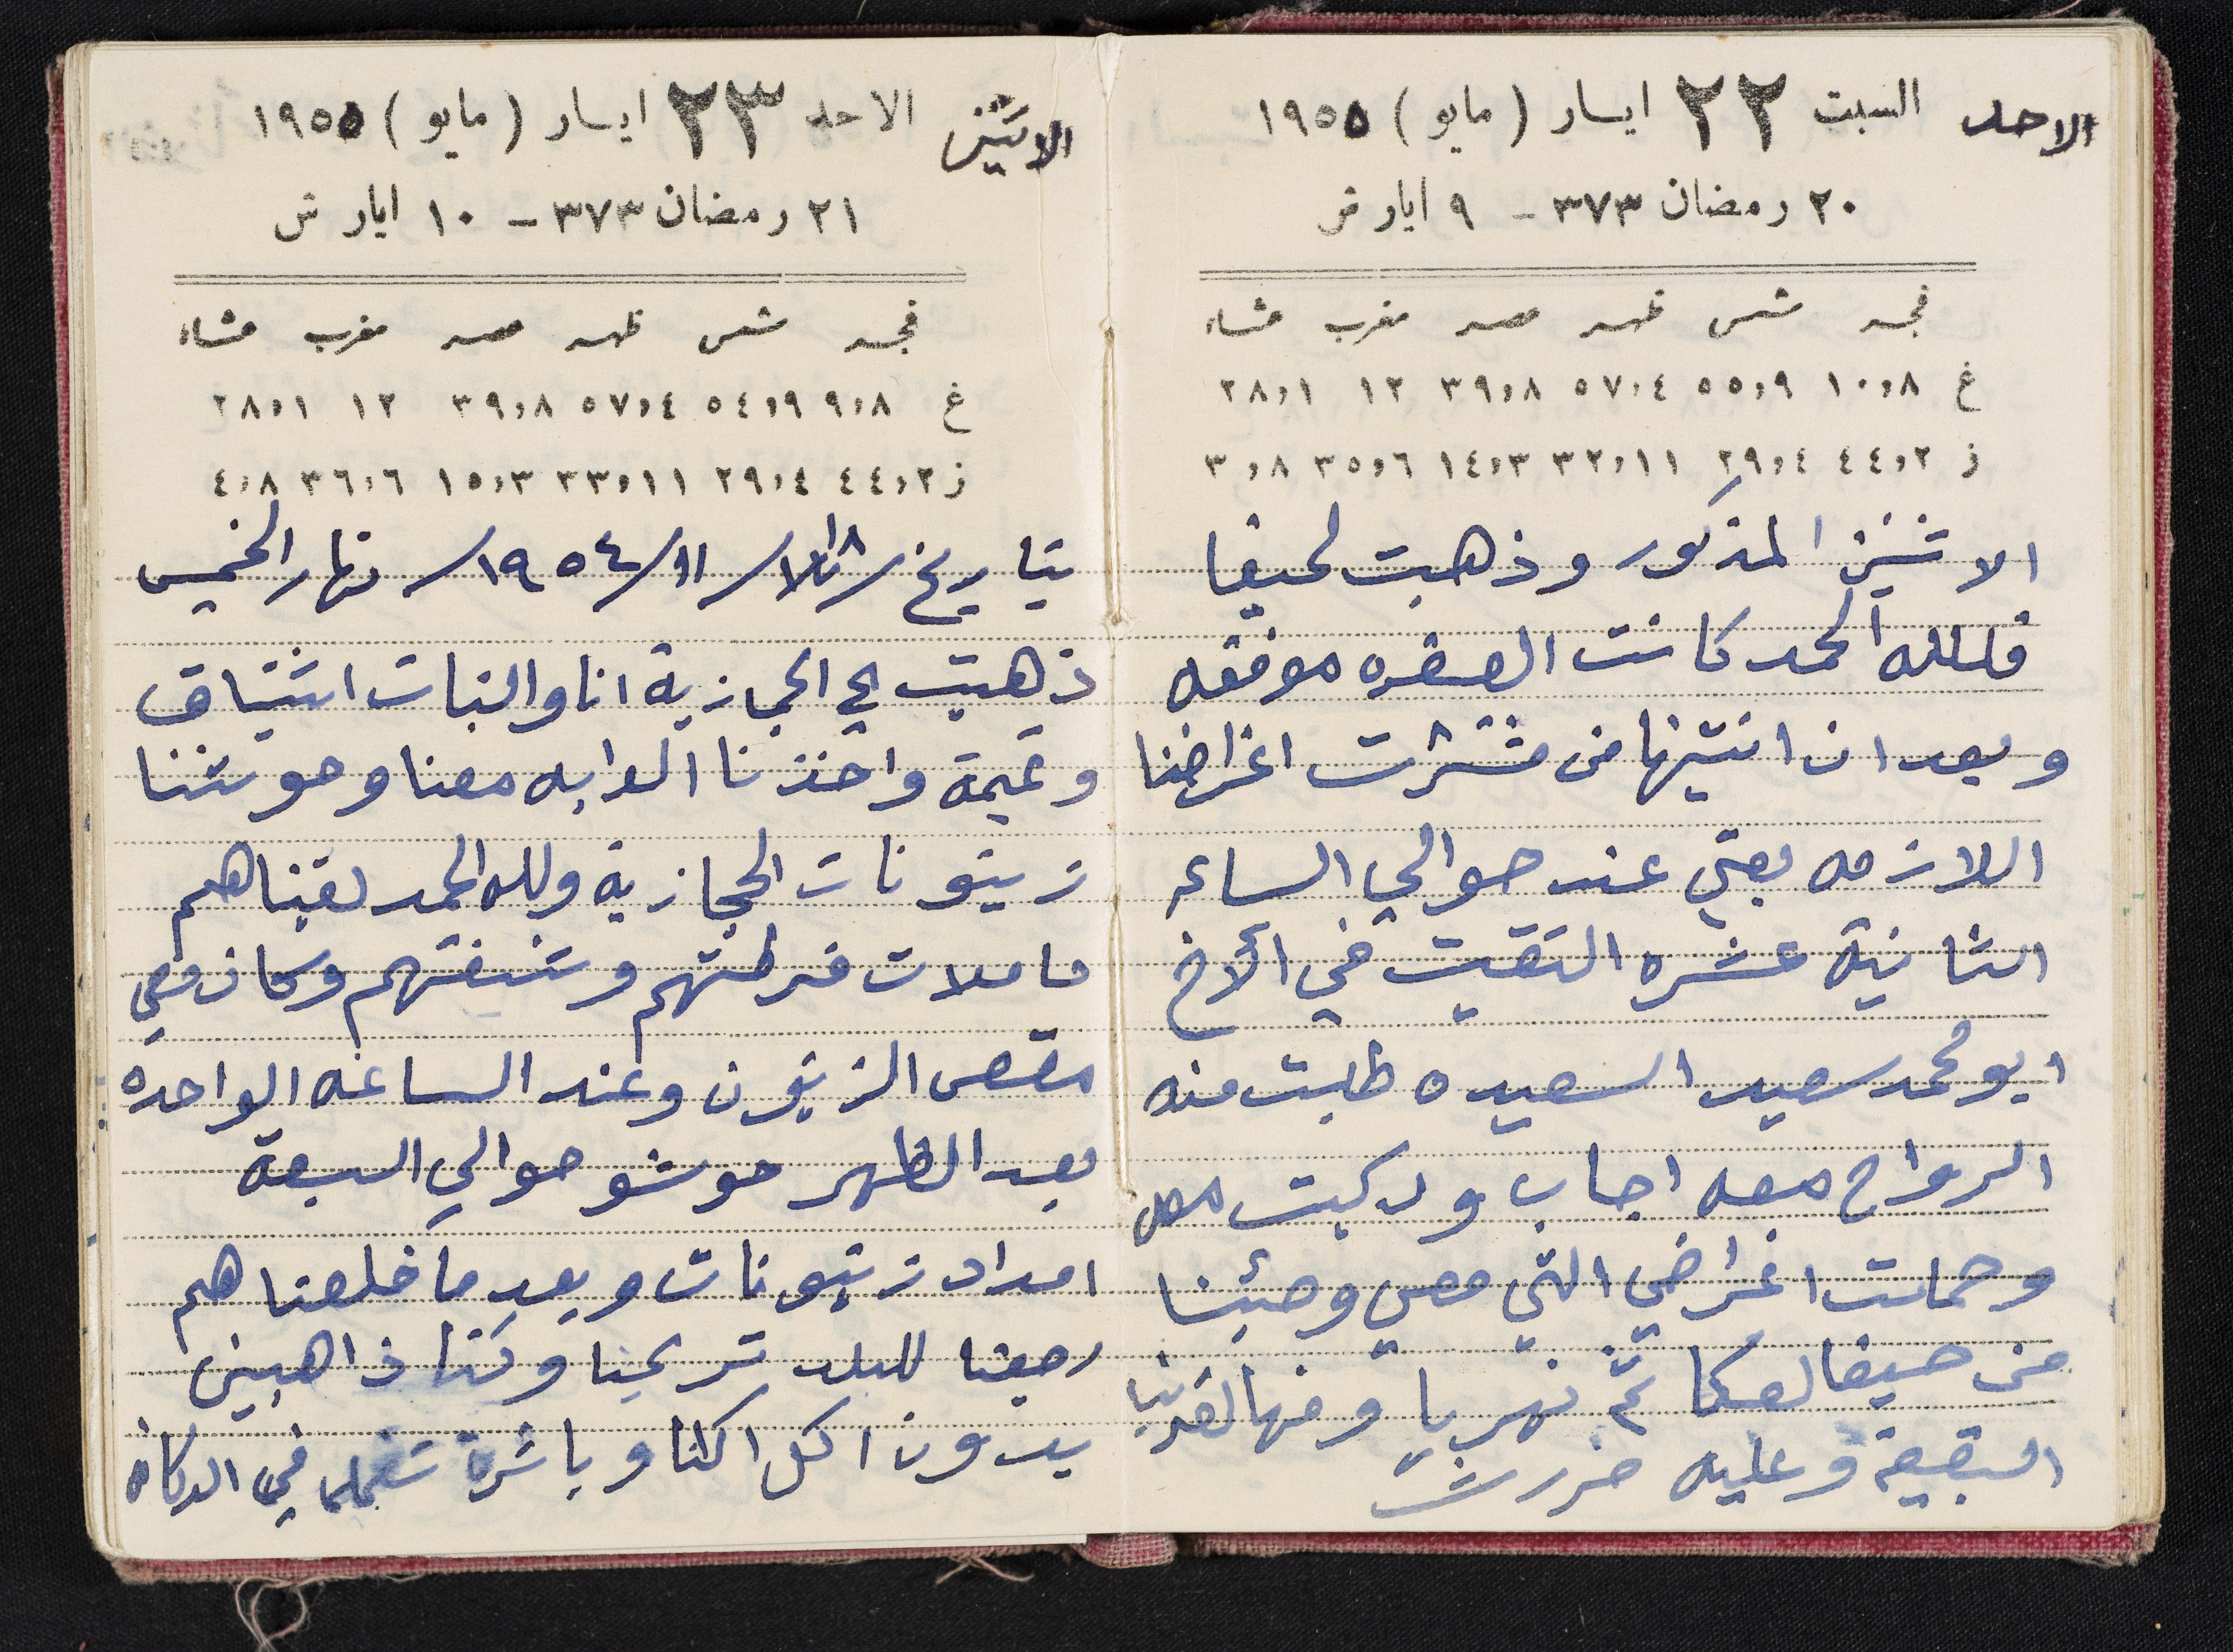 الاحد السبت ٢٢ ايار (مايو) ١٩٥٥
٢٠ رمضان ٣٧٣ - ٩ ايار ش
فجر شمس ظهر عصر مغرب عشاء
غ ١٠،٨ ٥٥،٩ ٥٧،٤ ٣٩،٨ ١٢ ٢٨،١
ز ٤٤،٢ ٢٩،٤ ٣٢،١١ ١٤،٣ ٣٥،٦ ٣،٨
الاثنين المذكور وذهبت لحيفا
فلله الحمد كانت الصفره موفقه
وبعد ان انتهينا من مشترت اغراضنا
اللازمه بعتي عند حوالي الساعه
الثانية عشره التقيت في الأخ
ابو محمد سعيد السعيده طلبت منه
الرواح معه اجاب وركبت معه
وحملت اغراضي التي معي وجئنا
من حيفا لعكا ثم نهريا ومنها لقريتنا
البقيعة وعليه حررت
الاثنين الاحد ٢٣ ايار (مايو) ١٩٥٥
٢١ رمضان ٣٧٣ - ١٠ ايار ش
فجر شمس ظهر عصر مغرب عشاء
غ ٩،٨ ٥٤،٩ ٥٧،٤ ٣٩،٨ ١٢ ٢٨،١
ز ٤٤،٢ ٢٩،٤ ٣٣،١١ ١٥،٣ ٣٦،٦ ٤،٨
بتاريخ ١٨/ ١١/ ١٩٥٤/ نهار الخميس
ذهبت الي الحجازية انا والبنات اشتياق
ونجمة واخذنا الدابه معنا وحوشنا
زيتونات الحجازية ولله الحمد لقيناهم
حاملات فرطتهم وشيفتهم وكان معي
مقص الزيتون وعند الساعه الواحده
بعد الظهر حوشو حوالي السبعة
امداد زيتونات وبعد ما خلصناهم
رجعنا للبلد تريحنا وكنا ذاهبين
بدون اكل اكلنا وباشرة شغلي في الدكانه